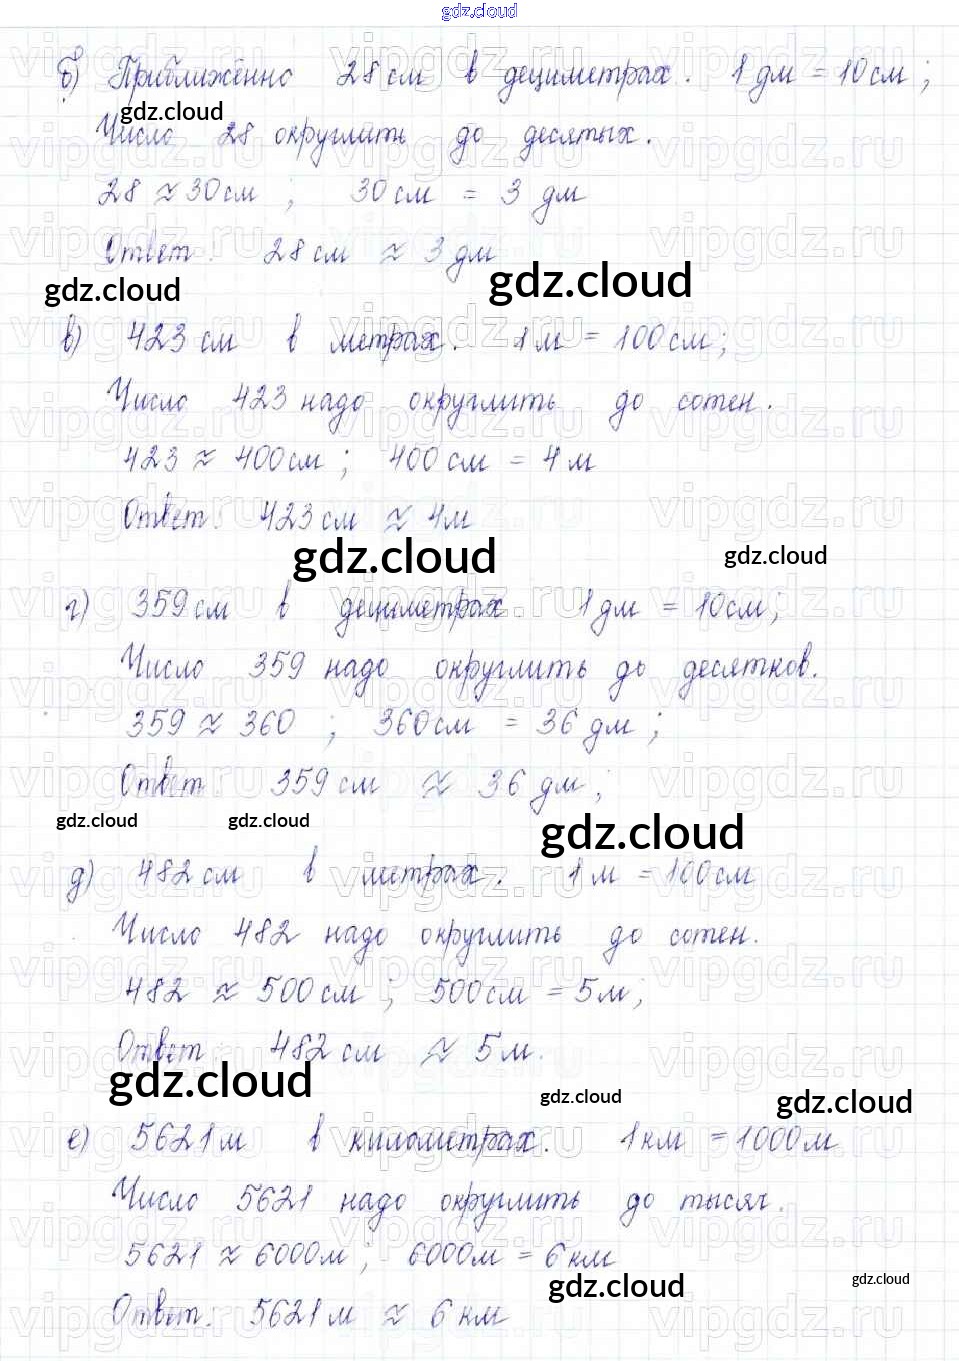 gdz.cloud
б) Приближённо 28 см в дециметрах. 1 дм = 10 см;
gdz.cloud
Число 28 округлить до десятых.
28 ≈ 30 см ; 30 см = 3 дм
Ответ: 28 см ≈ 3 дм
gdz.cloud gdz.cloud
в) 423 см в метрах. 1 м = 100 см;
Число 423 надо округлить до сотен.
423 ≈ 400 см ; 400 см = 4 м
Ответ: 423 см ≈ 4 м
gdz.cloud gdz.cloud
г) 359 см в дециметрах. 1 дм = 10 см;
Число 359 надо округлить до десятков.
359 ≈ 360 ; 360 см = 36 дм ;
Ответ: 359 см ≈ 36 дм ;
gdz.cloud gdz.cloud gdz.cloud
д) 482 см в метрах. 1 м = 100 см
Число 482 надо округлить до сотен.
482 ≈ 500 см ; 500 см = 5 м;
Ответ: 482 см ≈ 5 м.
gdz.cloud gdz.cloud gdz.cloud
е) 5621 м в километрах. 1 км = 1000 м
Число 5621 надо округлить до тысяч.
5621 ≈ 6000 м ; 6000 м = 6 км
gdz.cloud gdz.cloud
Ответ: 5621 м ≈ 6 км